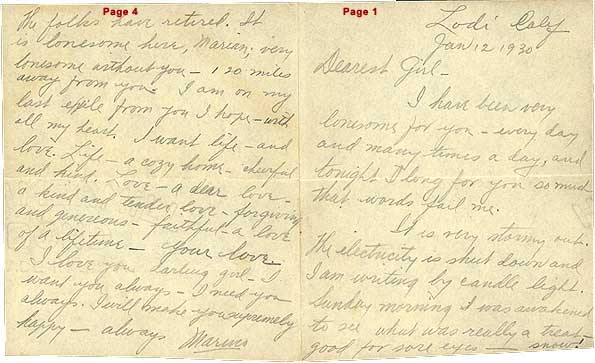 Page 1
Lodi Calif
Jan 12 1930
Dearest Girl –
I have been very
lonesome for you – every day
and many times a day, and
tonight I long for you so much
that words fail me.
It is very stormy out.
The electricity is shut down and
I am writing by candle light.
Sunday morning I was awakened
to see what was really a treat –
good for sore eyes – snow!
Page 4
The folks have retired. It
is lonesome here, Marian; very
lonesome without you – 120 miles
away from you. I am on my
last exile from you I hope – with
all my heart. I want life – and
love. Life – a cozy home – cheerful
and kind. Love – a dear love –
a kind and tender love – forgiving
and generous – faithful – a love
of a lifetime – Your love
I love you darling girl – I
want you always – I need you
always. I will make you supremely
happy – always Marino